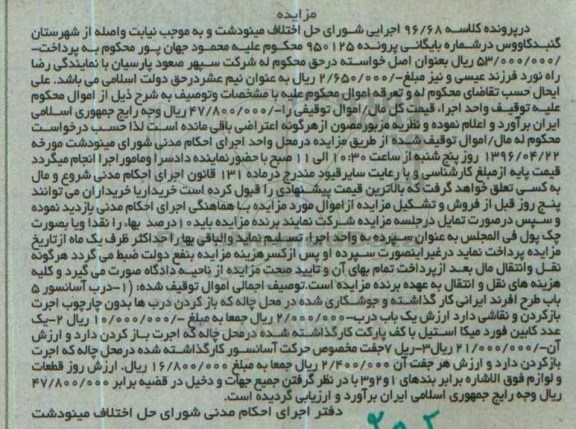 مزایده
درپرونده کلاسه ۹۶/۶۸ اجرایی شورای حل اختلاف مینودشت و به موجب نیابت واصله از شهرستان
گنبدکاووس درشماره بایگانی پرونده ۹۵۰۱۲۵ محکوم علیه محمود جهان پور محکوم به پرداخت-
/۵۳/۰۰۰/۰۰۰ ریال بعنوان اصل خواسته درحق محکوم له شرکت سپهر صعود پارسیان با نمایندگی رضا
راه نورد فرزند عیسی و نیز مبلغ-/۲/۶۵۰/۰۰۰ ریال به عنوان نیم عشردرحق دولت اسلامی می باشد. علی
ایحال حسب تقاضای محکوم له و تعرفه اموال محکوم علیه با مشخصات وتوصیف به شرح ذیل از اموال محکوم
علیه توقیف واحد اجرا، قیمت کل مال/اموال توقیفی را-/۴۷/۸۰۰/۰۰۰ ریال وجه رایج جمهوری اسلامی
ایران برآورد و اعلام نموده و نظریه مزبورمصون ازهرگونه اعتراضی باقی مانده است لذا حسب درخواست
محکوم له مال/اموال توقیف شده از طریق مزایده درمحل واحد اجرای احکام مدنی شورای مینودشت مورخه
۱۳۹۶/۰۴/۲۲ روز پنج شنبه ازساعت ۱۰:۳۰ الی ۱۱ صبح با حضورنماینده دادسرا ومامور اجرا انجام میگردد
قیمت پایه ازمبلغ کارشناسی و با رعایت سایرقیود مندرج درماده ۱۳۱ قانون اجرای احکام مدنی شروع و مال
به کسی تعلق خواهد گرفت که بالاترین قیمت پیشنهادی را قبول کرده است خریداریا خریداران می توانند
پنج روز قبل از فروش و تشکیل مزایده ازاموال مورد مزایده با هماهنگی اجرای احکام مدنی بازدید نموده
و سپس درصورت تمایل درجلسه مزایده شرکت نمایند برنده مزایده باید۱۰درصد بها، را نقدا ویا بصورت
چک پول فی المجلس به عنوان سپرده به واحد اجرا، تسلیم نماید والباقی بها را حداکثر ظرف یک ماه ازتاریخ
مزایده پرداخت نماید درغیراینصورت سپرده او پس ازکسرهزینه مزایده بنفع دولت ضبط می گردد هرگونه
نقل وانتقال مال بعد ازپرداخت تمام بهای آن و تایید صحت مزایده از ناحیه دادگاه صورت می گیرد و کلیه
هزینه های نقل و انتقال به عهده برنده مزایده است.توصیف اجمالی اموال توقیف شده: (۱-درب آسانسور ۵
باب طرح افرند ایرانی کار گذاشته و جوشکاری شده در محل چاله که باز کردن درب ها بدون چارچوب اجرت
بازکردن و نقاشی دارد ارزش یک باب درب-/۲/۰۰۰/۰۰۰ ریال جمعا به مبلغ -/۱۰/۰۰۰/۰۰۰ ریال ۲-یک
عدد کابین فورد میکا استیل با کف پارکت کارگذاشته شده درمحل چاله که اجرت باز کردن دارد و ارزش
آن-/۲۱/۰۰۰/۰۰۰ ریال۳-ریل ۷جفت مخصوص حرکت آسانسور کارگذاشته شده درمحل چاله که اجرت
بازکردن دارد و ارزش هر جفت آن ۲/۴۰۰/۰۰۰ ریال جمعا به مبلغ ۱۶/۸۰۰/۰۰۰ ریال. ارزش روز قطعات
و لوازم فوق الاشاره برابر بندهای ۱و۲و۳ با در نظر گرفتن جمیع جهات و دخیل در قضیه برابر ۴۷/۸۰۰/۰۰۰
ریال وجه رایج جمهوری اسلامی ایران برآورد و ارزیابی گردیده است.
دفتر اجرای احکام مدنی شورای حل اختلاف مینودشت